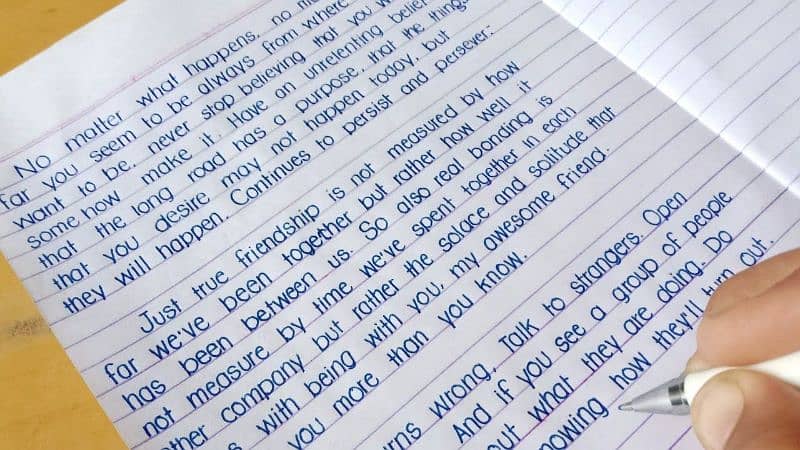 No matter what happens, no
far you seem to be always from where
want to be, never stop believing that you
some how make it. Have an unrelenting
that the long road has a purpose, that the things
that you desire may not happen today, but
they will happen. Continues to persist and persever.
Just true friendship is not measured by how
far we've been together but rather how well it
has been between us. So also real bonding is
not measure by time we've spent together in each
other company but rather the solace and solitude that
with being with you, my awesome friend.
you more than you know.
wrong, Talk to strangers. Open
And if you see a group of people
what they are doing. Do
how they'll turn out.